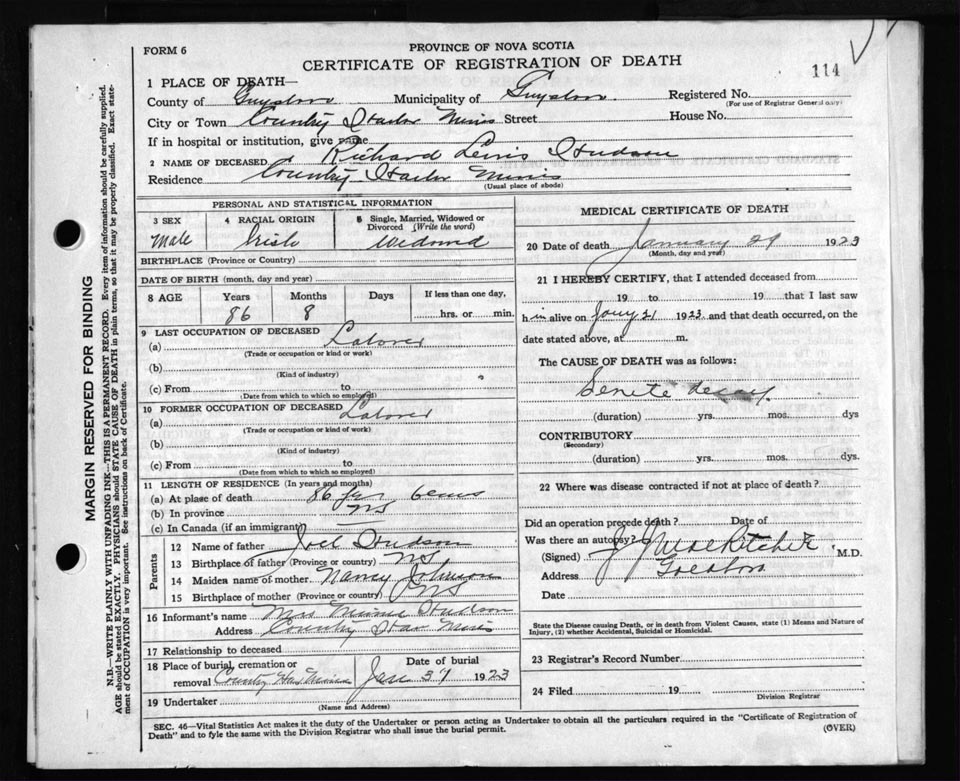 FORM 6
PROVINCE OF NOVA SCOTIA
CERTIFICATE OF REGISTRATION OF DEATH
114
1 PLACE OF DEATH—
County of Guysboro Municipality of Guysboro Registered No.
(For use of Registrar General only)
City or Town Country Harbor Mines Street House No.
If in hospital or institution, give name
2 NAME OF DECEASED Richard Lewis Hudson
Residence Country Harbor Mines
(Usual place of abode)
PERSONAL AND STATISTICAL INFORMATION
3 SEX Male
4 RACIAL ORIGIN Irish
5 Single, Married, Widowed or Divorced (Write the word) Widowed
BIRTHPLACE (Province or Country)
DATE OF BIRTH (month, day and year)
8 AGE Years 86 Months 8 Days If less than one day, hrs. or min.
9 LAST OCCUPATION OF DECEASED
(a) Laborer
(Trade or occupation or kind or work)
(b)
(Kind of industry)
(c) From to
(Date from which to which so employed)
10 FORMER OCCUPATION OF DECEASED
(a) Laborer
(Trade or occupation or kind of work)
(b)
(Kind of industry)
(c) From to
(Date from which to which so employed)
11 LENGTH OF RESIDENCE (In years and months)
(a) At plase of death 86
(b) In province NS
(c) In Canada (if an immigrant)
Parents
12 Name of father Joel Hudson
13 Birthplace of father (Province or country) NS
14 Maiden name of mother Nancy Johnson
15 Birthplace of mother (Province or country) NS
16 Informant's name Mrs Minnie Hudson
Address Country Har Mines
17 Relationship to deceased
18 Place of burial, cremation or removal Country Har Mines
Date of burial Jan 31 1923
19 Undertaker
(Name and Address)
MEDICAL CERTIFICATE OF DEATH
20 Date of death January 29 1923
(Month, day and year)
21 I HEREBY CERTIFY, that I attended deceased from
19 to 19 that I last saw
h im alive on Jany 21 1923 and that death occurred, on the
date stated above, at m.
The CAUSE OF DEATH was as follows:
Senile decay
(duration) yrs. mos. dys
CONTRIBUTORY
(Secondary)
(duration) yrs. mos. dys.
22 Where was disease contracted if not at place of death?
Did an operation precede death? Date of
Was there an autopsy?
(Signed) M.D.
Address Goldboro
Date
State the Disease causing Death, or in death from Violent Causes, state (1) Means and Nature of
Injury, (2) whether Accidental, Suicidal or Homicidal.
23 Registrar's Record Number
24 Filed 19
Division Registrar
SEC. 46—Vital Statistics Act makes it the duty of the Undertaker or person acting as Undertaker to obtain all the particulars required in the "Certificate of Registration of
Death" and to fyle the same with the Division Registrar who shall issue the burial permit.
(OVER)
MARGIN RESERVED FOR BINDING
N.B.—WRITE PLAINLY WITH UNFADING INK—THIS IS A PERMANENT RECORD. Every item of information should be carefully supplied.
AGE should be stated EXACTLY. PHYSICIANS should STATE CAUSE OF DEATH in plain terms, so that it may be properly classified. Exact state-
ment of OCCUPATION is very important. See instructions on back of Certificate.